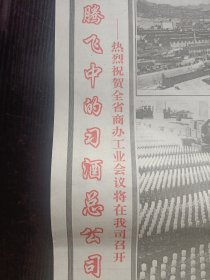 腾飞中的习酒总公司
——热烈祝贺全省商办工业会议将在我司召开